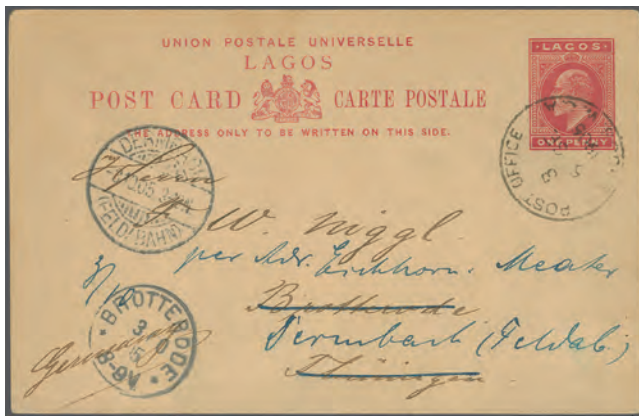 UNION POSTALE UNIVERSELLE
LAGOS
POST CARD CARTE POSTALE
THE ADDRESS ONLY TO BE WRITTEN ON THIS SIDE.
LAGOS
ONE PENNY
POST OFFICE
(FELDABAHN)
Herrn
W. Niggl
per Adr. Eichhorn. Meater
Brotterode
Dermbach (Feldab.)
Thüringen
Germany
BROTTERODE
8-9V